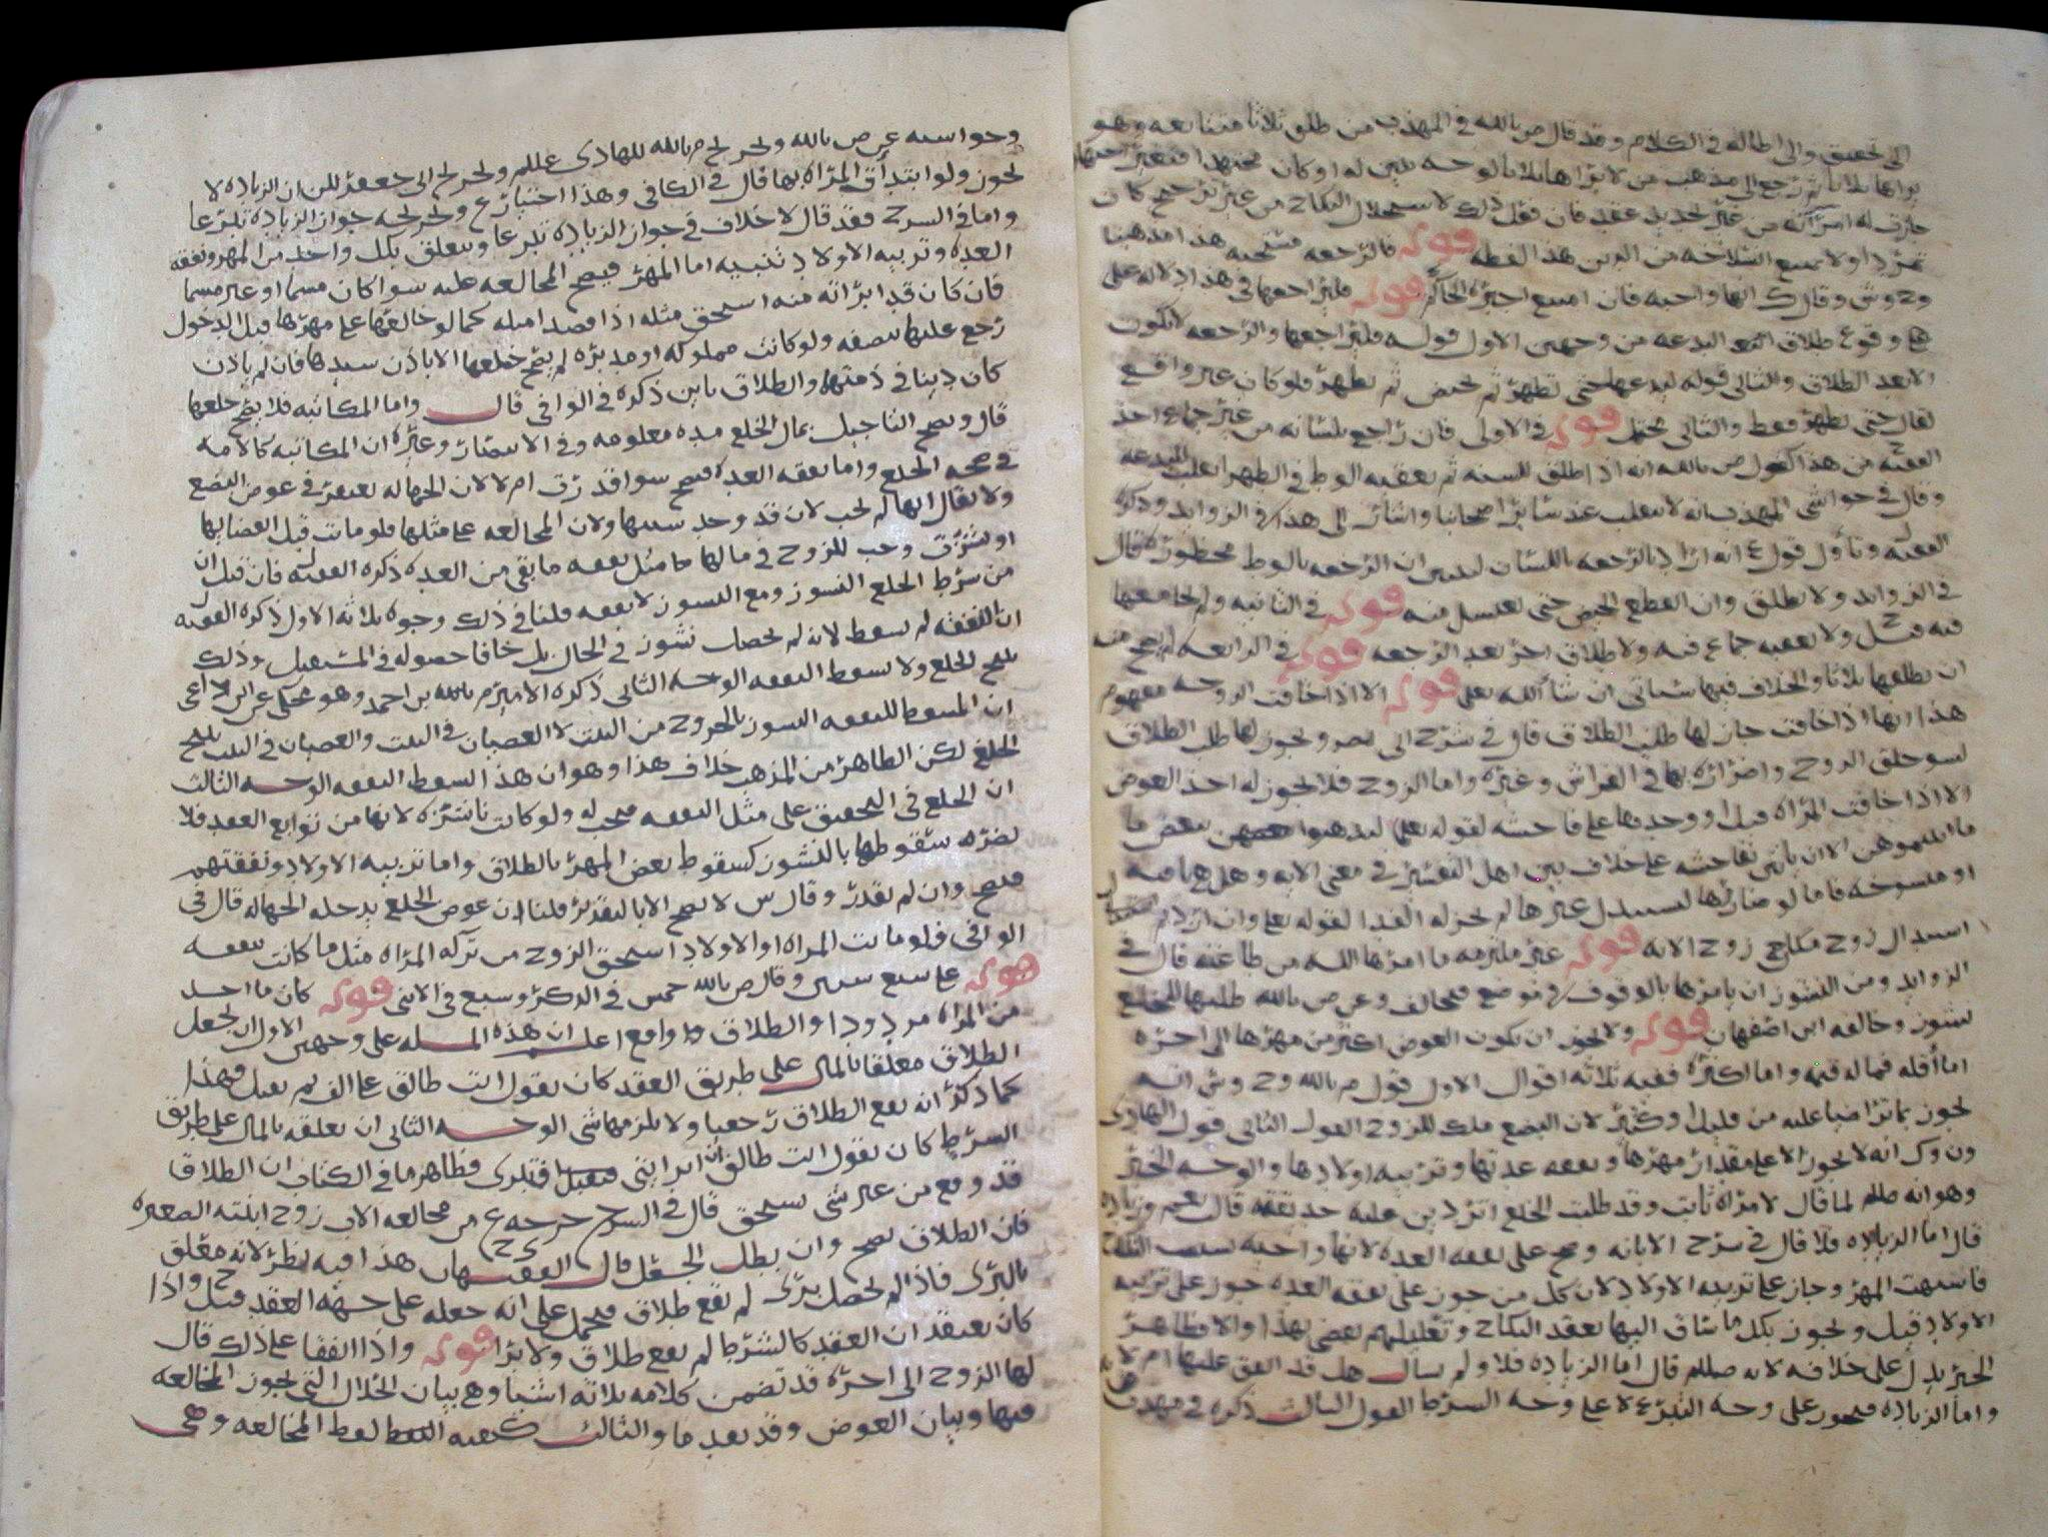 الى تحقيق والى اطاله في الكلام وقد قال ص بالله في المهذب من طلق ثلاثا متتابعه وهو
يراها ثلاثا ثم رجع الى مذهب من لا يراها ثلاثا لوجه تبين له او كان مجتهدا فتغير اجتهاده
جازت له امرأته من غير تجديد عقد فان فعل ذلك لاستحلال النكاح من غير ترجيح كان
تمردا ولا يمنع انسلاخه من الدين هذا لفظه قوله فالرجعه مستحبه هذا مذهبنا
وح وش وقال ك انها واجبه فان امتنع اجبره الحاكم قوله فليراجعها في هذا دلاله على
وقوع طلاق البدعه من وجهين الاول قوله فليراجعها والرجعه لا تكون
الا بعد الطلاق والثاني قوله ليدعها حتى تطهر ثم تحيض ثم تطهر فلو كان غير واقع
لقال حتى تطهر فقط والثاني محتمل قوله في الاولى فان راجع بلسانه من غير جماع اخذ
الفقيه من هذا كقول ص بالله انه اذا طلق للسنه ثم تعقبه الوطء في الطهر انقلب للبدعه
وقال في حواشي المهذب انه لا ينقلب عند سائر اصحابنا واشار الى هذا في الزوايد وذكره
الفقيه وتأول قول ع انه اراد بالرجعه باللسان ليبين ان الرجعه بالوطء محظوره قال
في الزوايد ولا يطلق وان انقطع الحيض حتى تغتسل منه قوله في الثانيه ولم يجامعها
فيه قبل ولا تعقبه جماع فيه ولا طلاق اخر بعد الرجعه قوله في الرابعه لم يصح منه
ان يطلقها ثلاثا والخلاف فيها سياتي ان شاء الله تعالى قوله الا اذا خافت الزوجه مفهوم
هذا انها اذا خافت جاز لها طلب الطلاق قال في شرح ويجوز لها طلب الطلاق
لسو خلق الزوج واضراره بها في الفراش وغيره واما الزوج فلا يجوز له اخذ العوض
الا اذا خافت المراه قبل او وجدها على فاحشه لقوله تعالى لتذهبوا ببعض ما
اتيتموهن الا ان ياتين بفاحشه على خلاف بين اهل التفسير في معنى الايه وهل هي باقيه
او منسوخه فاما لو ضارها ليستبدل غيرها لم يجز له الفدا لقوله تعالى وان اردتم
استبدال زوج مكان زوج الايه قوله غير ملتزمه ما امرها الله من طاعته قال في
الزوايد ومن النشوز ان يامرها بالوقوف في موضع فتخالف وعن ص بالله طلبها للخلع
نشوز وخالفه ابن اصفهان قوله ولا يجوز ان يكون العوض اكثر من مهرها الى اخره
اما أقله فما له قيمه واما اكثره ففيه ثلاثه اقوال الاول قول م بالله وح وش انه
يجوز بما تراضيا عليه من قليل او كثير لان البضع ملك للزوج القول الثاني قول الهادي
ون وك انه لا يجوز الا على مقدار مهرها ونفقه عدتها وتربيه اولادها والوجه الخبر
وهو انه صللم لما قال لامراه ثابت وقد طلبت الخلع اتردين عليه حديقته قالت نعم وزياده
قال اما الزياده فلا قال في شرح الابانه وصح على نفقه العده لانها واجبه بسبب النكاح
فاشبهت المهر وجاز على تربيه الاولاد لان كل من جوز على نفقه العده جوز على تربيه
الاولاد قيل ويجوز بكل ما ساق اليها بعقد النكاح وتعليلهم يقضي بهذا والا فظاهر
الخبر يدل على خلافه لانه صللم قال اما الزياده فلا ولم يسال هل قد انفق عليها ام لا
واما الزياده فيجوز على وجه التبرع لا على وجه الشرط القول الثالث ذكره في مهذب ص
وحواشيه عن ص بالله وتخريج م بالله للهادي عللم وتخريج الى جعفر لكن ان الزياده لا
تجوز ولو ابتدأت المراه بها قال في الكافي وهذا اختيار ع وتخريجه جواز الزياده تبرعا
واما في الشرح فقد قال لا خلاف في جواز الزياده تبرعا ويتعلق بكل واحد من المهر ونفقه
العده وتربيه الاولاد تنبيه اما المهر فيصح المخالعه عليه سوا كان مسما او غير مسما
فان كان قد ابراته منه استحق مثله اذا قصدا مثله كما لو خالعها على مهرها قبل الدخول
رجع عليها بنصفه ولو كانت مملوكه او مدبره لم يصح خلعها الا باذن سيدها فان لم ياذن
كان دينا في ذمتها والطلاق باين ذكره في الوافي قال واما المكاتبه فلا يصح خلعها
قال ويصح التاجيل بمال الخلع مده معلومه وفي الانتصار وغيره ان المكاتبه كالامه
في صحه الخلع واما نفقه العده فيصح سوا قدرت ام لا لان الجهاله تغتفر في عوض البضع
ولا يقال انها لم تجب لان قد وجد سببها ولان المخالعه على مثلها فلو ماتت قبل انقضايها
او نشزت وجب للزوج في مالها مثل نفقه ما بقي من العده ذكره الفقيه ل فان قيل ان
من شرط الخلع النشوز ومع النشوز لا نفقه قلنا في ذلك وجوه ثلاثه الاول ذكره الفقيه ل
ان النفقه لم تسقط لانه لم يحصل نشوز في الحال بل خافا حصوله في المستقبل وذلك
يبيح الخلع ولا يسقط النفقه الوجه الثاني ذكره الامير م بالله بن احمد وهو محكي عن ابن داعي
ان المسقط للنفقه النشوز بالخروج من البيت لا العصيان في البيت والعصيان في البيت يبيح
الخلع لكن الظاهر من المذهب خلاف هذا وهو ان هذا يسقط النفقه الوجه الثالث
ان الخلع في التحقيق على مثل النفقه فيجب له ولو كانت ناشزه لانها من توابع العقد فلا
يضره سقوطها بالنشوز كسقوط بعض المهر بالطلاق واما تربيه الاولاد ونفقتهم
فيصح وان لم تقدر وقال ش لا يصح الا بالتقدير قلنا ان عوض الخلع يدخله الجهاله قال في
الوافي فلو ماتت المراه او الاولاد استحق الزوج من تركه المراه مثل ما كانت تنفقه
قوله على سبع سنين وقال ص بالله خمس في الذكر وسبع في الانثى قوله كان ما اخذ
من المراه مردودا والطلاق واقع اعلم ان هذه المساله على وجهين الاول ان يجعل
الطلاق معلقا بالمال على طريق العقد كان يقول انت طالق على الف لم يقبل فهذا
كما ذكر انه يقع الطلاق رجعيا ولا يلزمها شي الوجه الثاني ان يعلقه بالمال على طريق
الشرط كان يقول انت طالق ان ابراتيني فتبرى فظاهر ما في الكتاب ان الطلاق
قد وقع من غير شي يستحق قال في الشرح خرجه ع من مخالعه الاب زوج ابنته الصغيره
فان الطلاق يصح وان بطل الجعل قال الفقيهان ح ي هذا فيه نظر لانه معلق
بالبرى فاذا لم يحصل برى لم يقع طلاق فيحمل على انه جعله على جهه العقد قيل ح واذا
كان يعتقد ان العقد كالشرط لم يقع طلاق ولا برا قوله واذا اتفقا على ذلك قال
لها الزوج الى اخره قد تضمن كلامه ثلاثه اشيا وهي بيان الخلال التي تجوز المخالعه
فيها وبيان العوض وقد تقدما والثالث كيفيه لفظ المخالعه وهي